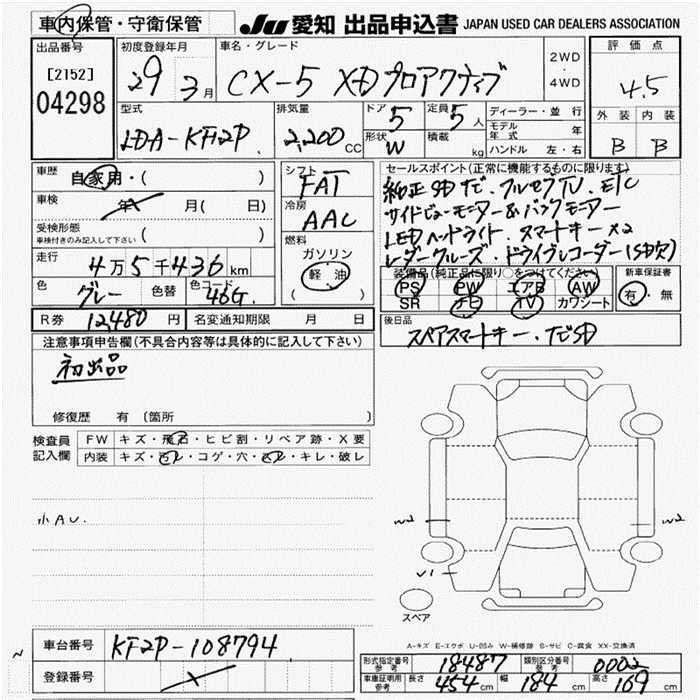 車内保管・守衛保管 JU 愛知 出品申込書 JAPAN USED CAR DEALERS ASSOCIATION
出品番号 [2152] 04298
初度登録年月 29 3月
車名・グレード CX-5 XDプロアクティブ
2WD・4WD
評価点 4.5
型式 LDA-KF2P
排気量 2,200 CC
ドア 5 定員 5人
形状 W 積載 kg
ディーラー・並行
モデル年式 年
ハンドル 左・右
外装 内装
B B
車歴 自家用・( )
車検 年 月( 日)
受検形態
車検付きのみ記入して下さい ( )
走行 4万5千436km
色 グレー 色替 色コード 46G
シフト FAT
冷房 AAC
燃料
ガソリン
軽油
( )
セールスポイント(正常に機能するものに限ります)
純正SDナビ.フルセグTV.ETC
サイドビューモニター&バックモニター
LEDヘッドライト.スマートキー×2
レダークルーズ・ドライブレコーダー(SD欠)
装備品(純正品に限り○をつけてください)
PS PW エアB AW
SR ナビ TV カワシート
新車保証書
有・無
R券 12,480円 名変通知期限 月 日
後日品 スペアスマートキー.ナビSD
注意事項申告欄(不具合内容等は具体的に記入して下さい)
初出品
修復歴 有 〔箇所
検査員記入欄
FW キズ・飛石・ヒビ割・リペア跡・X要
内装 キズ・汚レ・コゲ・穴・スレ・キレ・破レ
小AU.
W2
W2
V1
スペア
A-キズ E-エクボ U-凹み W-補修跡 S-サビ C-腐食 XX-交換済
車台番号 KF2P-108794
登録番号
形式指定番号参考 18487 類別区分番号参考 0002
車庫証明用参考 長さ 454cm 幅 184cm 高さ 169cm